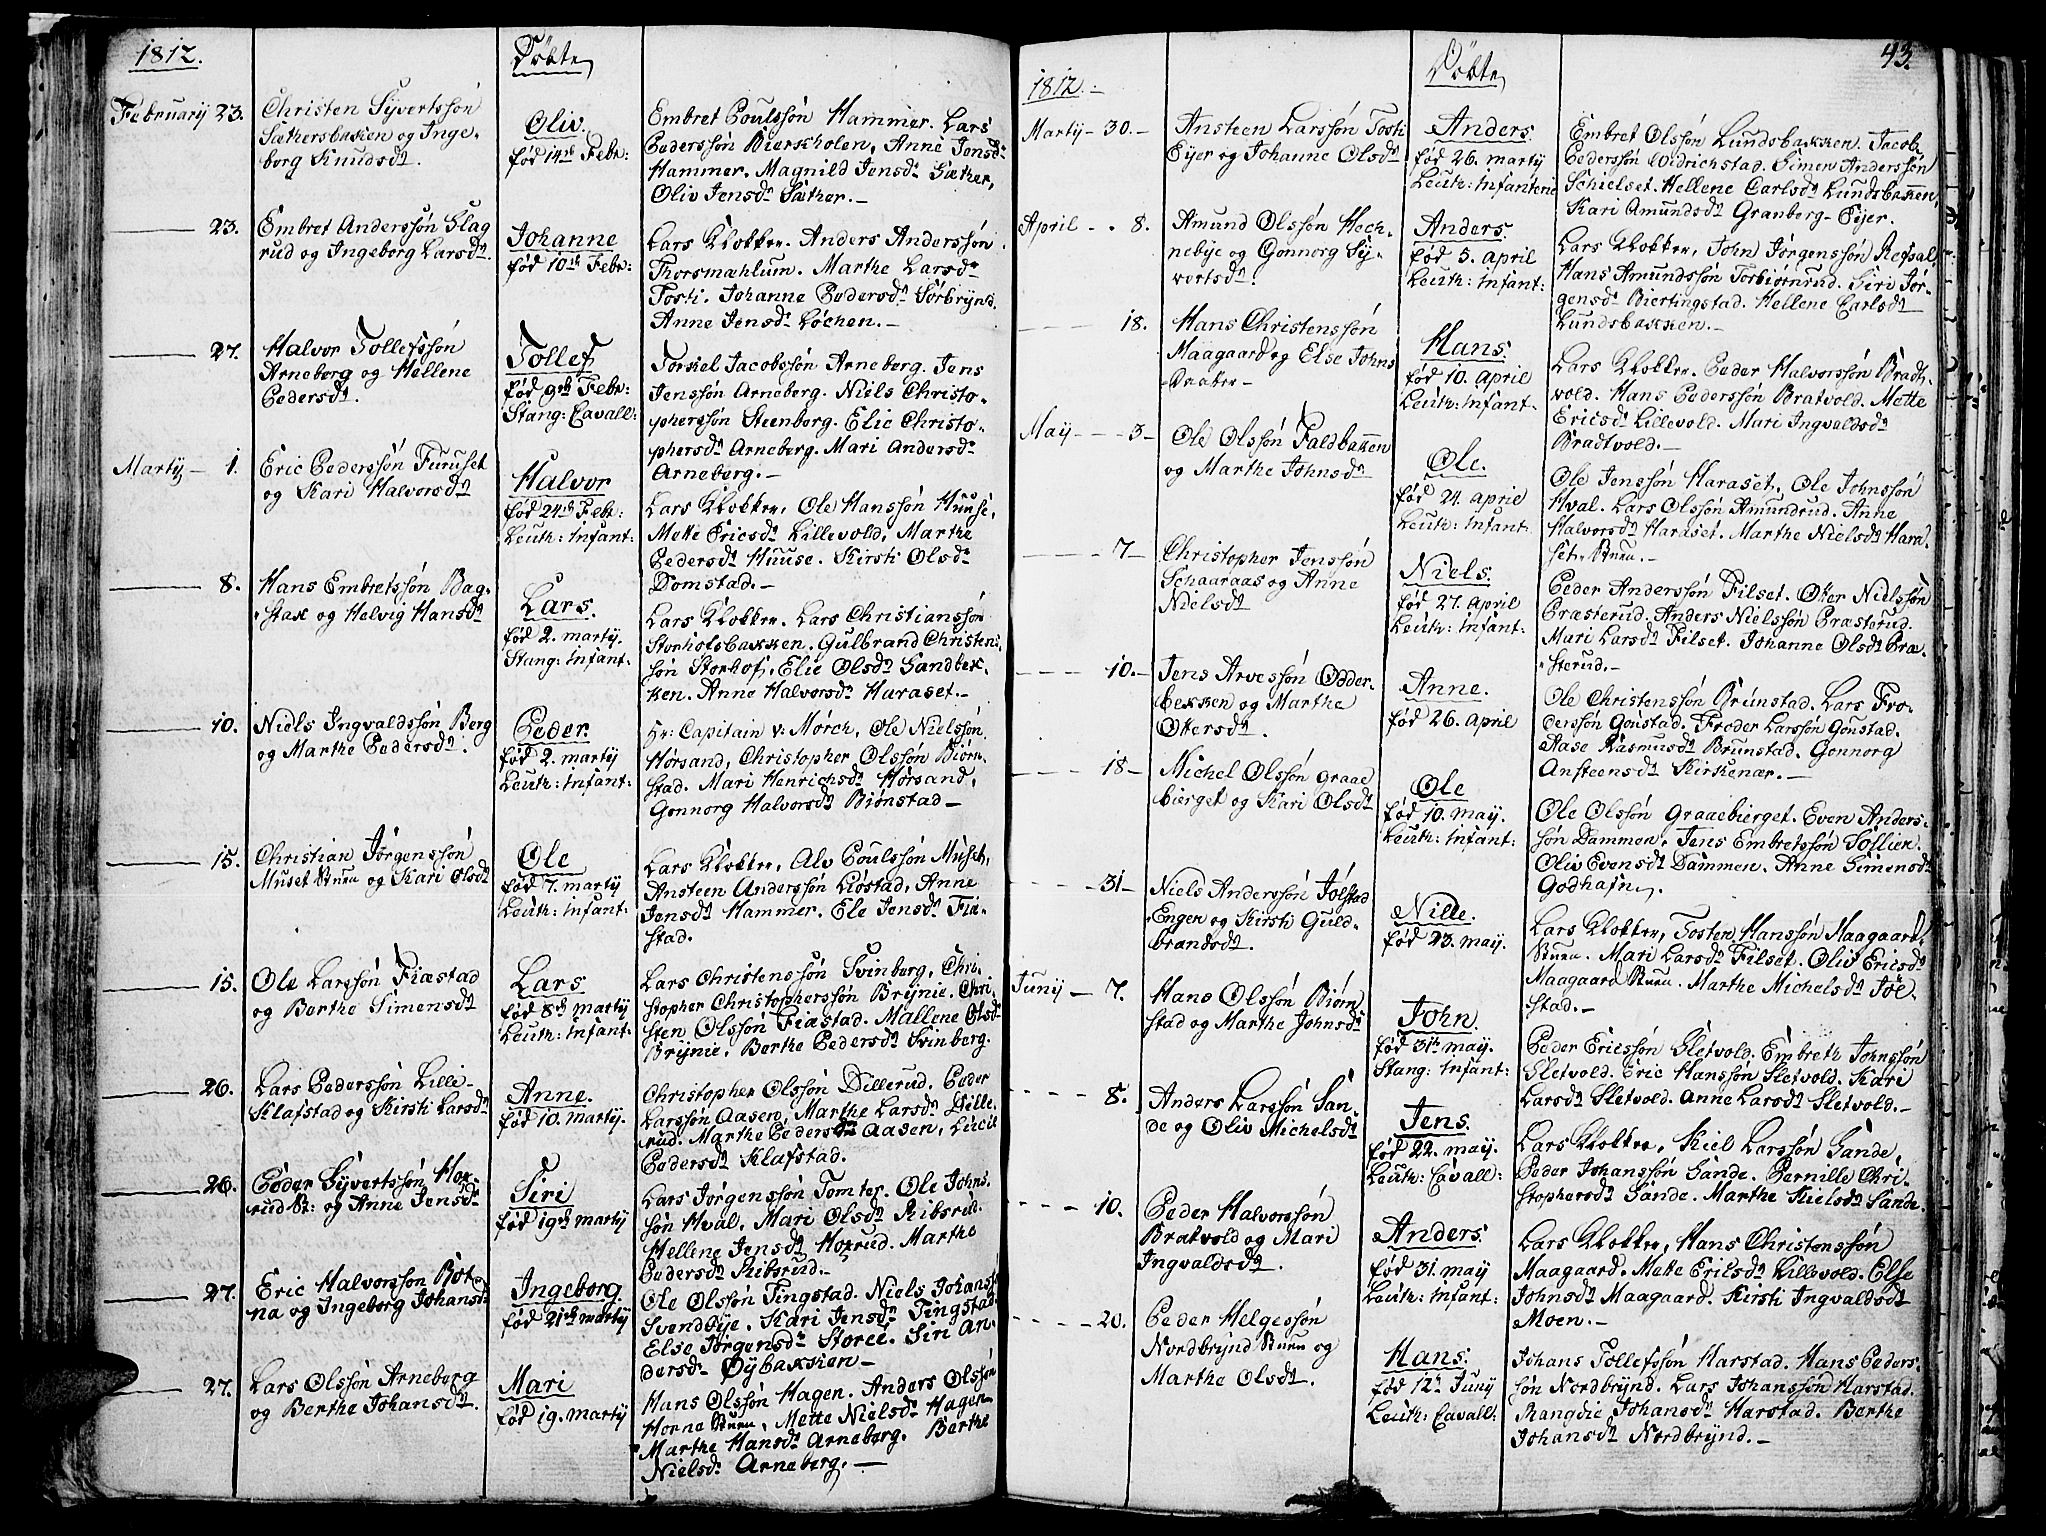 1812.
Döbte
Februarij 23.
Christen Sÿvertssón
Sæthersbakken og Inge-
borg Knudsdr.
Oliv.
fód 14de Febr:
Embret Poulssón Hammer. Lars
Pederssón Bierkholen, Anne Jensdr
Hammer. Magnild Jensdr Sæther,
Oliv Jensdr Sæther.-
23.
Embret Anderssón Slag
rud og Ingeborg Larsdr.
Johanne
fód 10de Febr:
Lars Klokker. Anders Anderssón
Thorsmæhlum. Marthe Larsdr
Tosti. Johanne Pedersdr Sórbrÿnd.
Anne Jensdr Lóchen.-
27.
Halvor Tollefssón
Arneberg og Hellene
Pedersdr.
Tollef
fód 9de Febr:
Stang: Cavall:
Torkel Jacobssón Arneberg. Jens
Jenssón Arneberg. Niels Christo-
pherssón Steenberg. Elie Christo-
phersdr Arneberg. Mari Andersdr
Arneberg.-
Martÿ - 1.
Eric Pederssón Furuset
og Kari Halvorsdr
Halvor
fód 24de Febr:
Leuth: Infant:
Lars Klokker, Ole Hanssón Huuse,
Mette Ericsdr Lillevold, Marthe
Pedersdr Huuse. Kirsti Olsdr
Domstad.-
8.
Hans Embretssón Bag-
stak og Helvig Hansdr
Lars.
fód 2. martÿ.
Stang: Infant:
Lars Klokker. Lars Christianssón
Storhofsbakken. Gulbrand Christens
són Storhof, Elie Olsdr Sandbek-
ken. Anne Halvorsdr Haraset.-
10.
Niels Ingvaldssón Berg
og Marthe Pedersdr.
Peder.
fód 2. martÿ
Leuth: Infant:
Hr: Capitain v: Mórch, Ole Nielssón
Hórsand, Christopher Olssón Biórn-
stad. Mari Henrichsdr Hórsand,
Gonnorg Halvorsdr Biónstad -
15.
Christian Jórgenssón
Muset og Kari Olsdr
Ole
fód 7. martÿ
Leuth: Infant:
Lars Klokker, Alv Poulssón Muset,
Ansteen Anderssón Lióstad, Anne
Jensdr Hammer. Ele Jensdr Fiæ-
stad.
15.
Ole Larssón Fiæstad
og Berthe Simensdr
Lars
fód 8de martÿ
Leuth: Infant:
Lars Christenssón Svinberg, Chri-
stopher Christopherssón Brÿnie. Chri
sten Olssón Fiæstad. Mallene Olsdr
Brÿnie, Berthe Pedersdr Svinberg.
26.
Lars Pederssón Lille-
Klafstad og Kirsti Larsdr
Anne.
fód 10. martÿ.
Christopher Olssón Dillerud. Peder
Larssón Aasen, Marthe Larsdr Dille
rud. Marthe Pedersdr Aasen, Lucie
Pedersdr Klafstad.
26.
Peder Sÿvertssón Hox-
rud St: og Anne Jensdr
Siri
fód 19de martÿ
Lars Jórgenssón Tomter. Ole Johns-
són Hval. Mari Olsdr Ribsrud.
Hellene Jensdr Hoxrud. Marthe
Pedersdr Ribsrud.-
27.
Eric Halvorssón Bot
na og Ingeborg Johansdr
Ingeborg
fód 21de martÿ
Ole Olssón Tingstad. Niels Johanss
Svendbÿe. Kari Jensdr Tingstad.
Else Jórgensdr Storee. Siri An-
dersdr Óÿbakken -
27.
Lars Olssón Arneberg
og Berthe Johansdr.
Mari
fód 19. martÿ
Hans Olssón Hagen. Anders Olssón
Horne, Mette Nielsdr Hagen
Marthe Hansdr Arneberg. Berthe
Nielsdr Arneberg.-
43.
1812.-
Döbte
Martÿ - 30.-
Ansteen Larssón Tosti
Eÿer og Johanne Olsdr
Anders.
fód 26. martÿ
Leuth: Infanterie
Embret Olssón Lundsbakken. Jacob
Pederssón Didrichstad. Simen Anderssón
Schielset. Hellene Carlsdr Lundsbakken,
Kari Amundsdr Granberg-Eÿer.
April - . 8.
Amund Olssón Hoch-
nebÿe og Gonnorg Sÿ-
vertsdr.
Anders.
fód 5. april
Leuth: Infant:
Lars Klokker, John Jórgenssón Refsal,
Hans Amundssón Torbiórnrud. Siri Jór-
gensdr Biertingstad. Hellene Carlsdr
Lundsbakken.-
18.
Hans Christenssón
Maagaard og Else Johns
Datter -
Hans.
fód 10. april
Leuth: Infant:
Lars Klokker. Peder Halvorssón Bradt-
vold. Hans Pederssón Bratvold. Mette
Ericsdr Lillevold. Mari Ingvaldsdr
Bradtvold.-
Maÿ - - - 3 -
Ole Olssón Faldbakken
og Marthe Johnsdr
Ole.
fód 24. april
Leuth: Infant:
Ole Jenssón Haraset, Ole Johnssón
Hval. Lars Olssón Amundrud. Anne
Halvorsdr Haraset. Marthe Nielsdr Hara-
set.-
7 -
Christopher Jenssón
Schaaraas og Anne
Nielsdr
Niels.
fód 27. april
Leuth: Infant:
Peder Anderssón Filset. Otter Nielssón
Præsterud. Anders Nielssón Præsterud.
Mari Larsdr Filset. Johanne Olsdr Præ-
sterud.-
10.-
Jens Arvessón Odder-
bekken og Marthe
Ottersdr.
Anne.
fód 26. april
Ole Christenssón Brúnstad. Lars Fro-
derssón Goustad. Froder Larssón Goustad.
Aase Rasmusdr Brunstad. Gonnorg
Ansteensdr Kirkenær.-
18 -
Michel Olssón Graae
bierget og Kari Olsdr
Ole
fód 10. maÿ.
Leuth: Infant:
Ole Olssón Graaebierget. Even Anders-
són Dammen. Jens Embretssón Sollien.
Oliv Evensdr Dammen. Anne Simensdr
Godhafn.
31 -
Niels Anderssón Jólstad
Engen og Kirsti Guld-
brandsdr.
Nille.
fód 23. maÿ.
Lars Klokker, Tosten Hanssón Maagaard
Mari Larsdr Filset. Oliv Ericsdr
Maagaard. Marthe Michelsdr Jól-
stad.-
Junÿ - 7.
Hans Olssón Biórn
stad og Marthe Johnsdr
John.
fód 31te maÿ.
Stang: Infant:
Peder Ericssón Sletvold. Embreth Johnssón
Sletvold. Eric Hanssón Sletvold. Kari
Larsdr Sletvold. Anne Larsdr Sletvold.-
8.
Anders Larssón San-
de og Oliv Michelsdr
Jens.
fód 22. maÿ.
Leuth: Cavall:
Lars Klokker, Kiel Larssón Sande,
Peder Johanssón Sande. Pernille Chri-
stophersdr Sande. Marthe Kielsdr Sande.
10.
Peder Halvorssón
Bratvold og Mari
Ingvaldsdr.
Anders.
fód 31. maÿ
Leuth: Infant:
Lars Klokker, Hans Christenssón
Maagaard. Mette Ericsdr Lillevold. Else
Johnsdr Maagaard. Kirsti Ingvaldsdr
Moen.-
20.
Peder Helgessón
Nordbrÿnd og
Marthe Olsdr.
Hans.
fód 12te Junÿ
Leuth: Cavall:
Johans Tollefssón Harstad. Hans Peders-
són Nordbrÿnd. Lars Johanssón Harstad.
Rangdie Johansdr Harstad. Berthe
Johansdr Nordbrÿnd.-